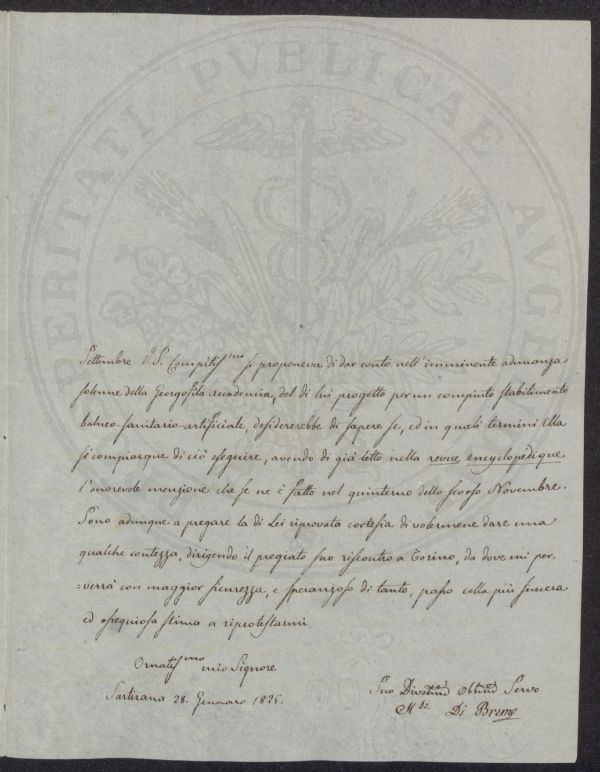 VERITATI PVBLICAE AVGE
Settembre V. S. Compitiss.mo si proponeva di dar conto nell'imminente adunanza
solenne della Georgofila accademia, del di lei progetto per un compiuto stabilimento
balneo-sanitario-artificiale, desidererebbe di sapere se, ed in quali termini Ella
si compiacque di ciò eseguire, avendo di già letto nella revue encyclopédique
l'onorevole menzione che se ne è fatto nel quinterno dello scorso Novembre.
Sono adunque a pregare la di Lei riprovata cortesia di volermene dare una
qualche contezza, dirigendo il pregiato suo riscontro a Torino, da dove mi per=
=verrà con maggior sicurezza, e speranzoso di tanto, passo colla più sincera
ed ossequiosa stima a riprotestarmi
Ornatiss.mo mio Signore
Sartirana 28. Gennaro 1826.
Suo Divotmo Obbmo Servo
M.se Di Breme